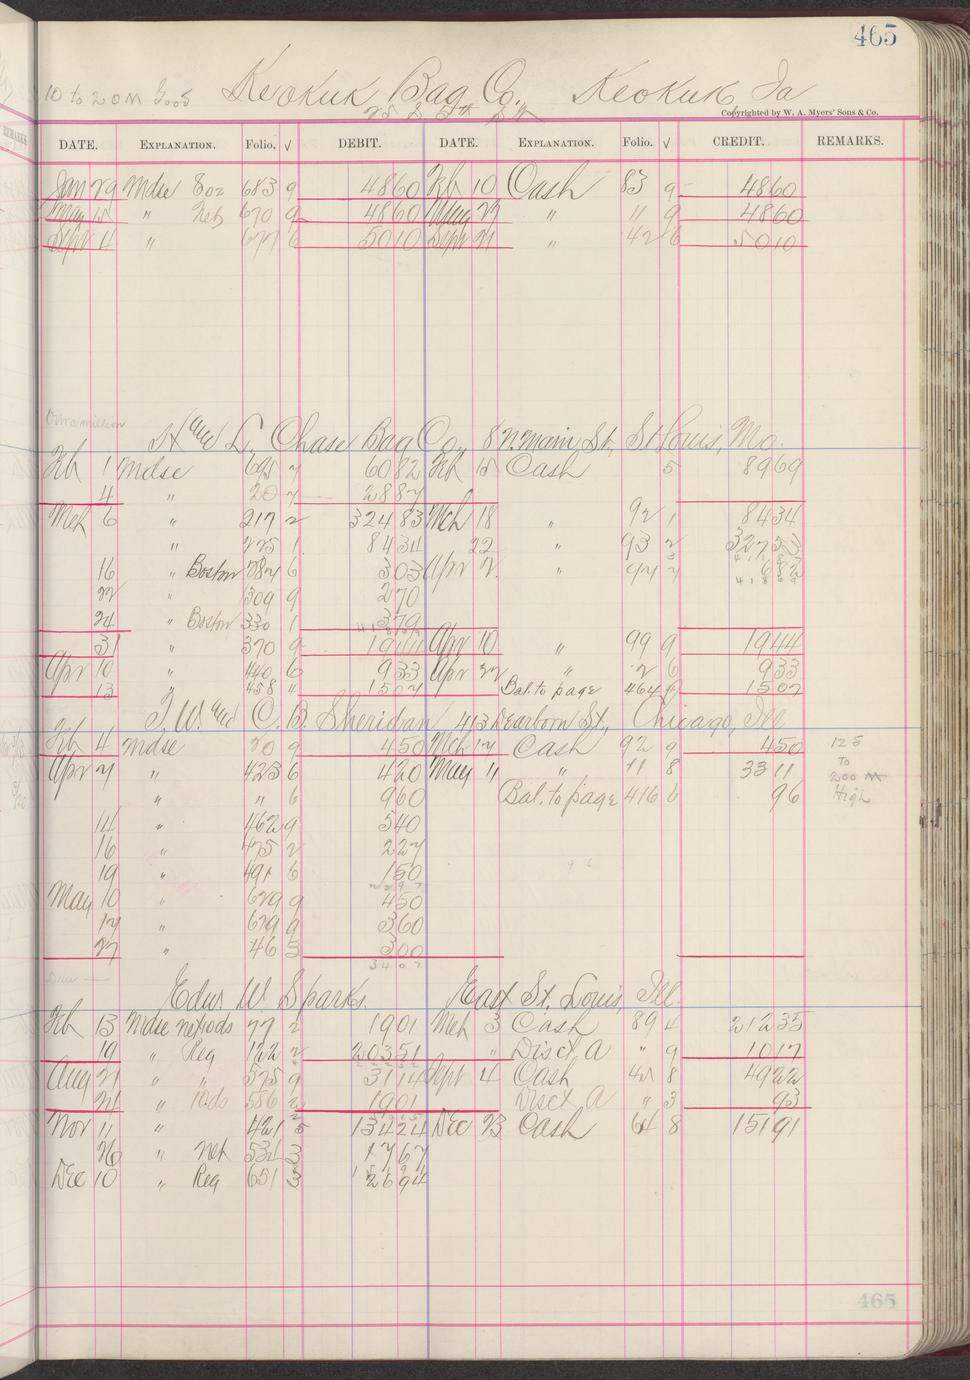 465
10 to 20 M Good Keokuk Bag Co. Keokuk, Ia
Copyrighted by W. A. Myers' Sons & Co.
DATE. EXPLANATION. Folio. √ DEBIT. DATE. EXPLANATION. Folio. √ CREDIT. REMARKS.
Jan 29 Mdse 8oz 683 9 4860 Feb 10 Cash 83 9 4860
May 15 " Net 670 9 4860 May 27 " 11 9 4860
Sept 4 " 677 6 5010 Sept 21 " 42 6 5010
Over a million
H and L Chase Bag Co., 8 N. Main St, St Louis, Mo.
Feb 1 Mdse 695 7 6082 Feb 15 Cash 5 8969
4 " 20 7 2887
Mch 6 " 217 2 32483 Mch 18 " 92 1 8434
" 225 1 8434 22 " 93 2 32753
16 " Boston 287 6 303 Apr 2 " 97 7 682
22 " 309 9 270
24 " Boston 330 1 379
31 " 370 9 1944 Apr 10 " 99 9 1944
Apr 10 " 440 6 933 Apr 22 " 2 6 933
13 " 458 4 1507 Bal. to page 464 6 1507
T. W. and C. B. Sheridan 413 Dearborn St., Chicago, Ill
Feb 4 Mdse 20 9 450 Mch 17 Cash 92 9 450 125
Apr 7 " 423 6 420 May 11 " 11 8 3311 to
" " 6 960 Bal. to page 416 6 96 200 M
High
14 " 462 9 540
16 " 475 2 227
19 " 491 6 150
May 10 " 629 9 450
17 " 679 9 360
27 " 46 3 300
3407
Edw. W. Sparks. East St. Louis, Ill.
Feb 13 Mdse net 10ds 77 2 1901 Mch 3 Cash 89 4 21235
19 " Reg 122 2 20351 " Disct A " 9 1017
Aug 21 " " 575 9 3114 Sept 4 Cash 41 8 4922
24 " 10ds 586 2 1901 Disct A " 3 93
Nov 11 " 421 5 13424 Dec 23 Cash 64 8 15191
26 " net 534 3 1767
Dec 10 " Reg 651 3 2694
465